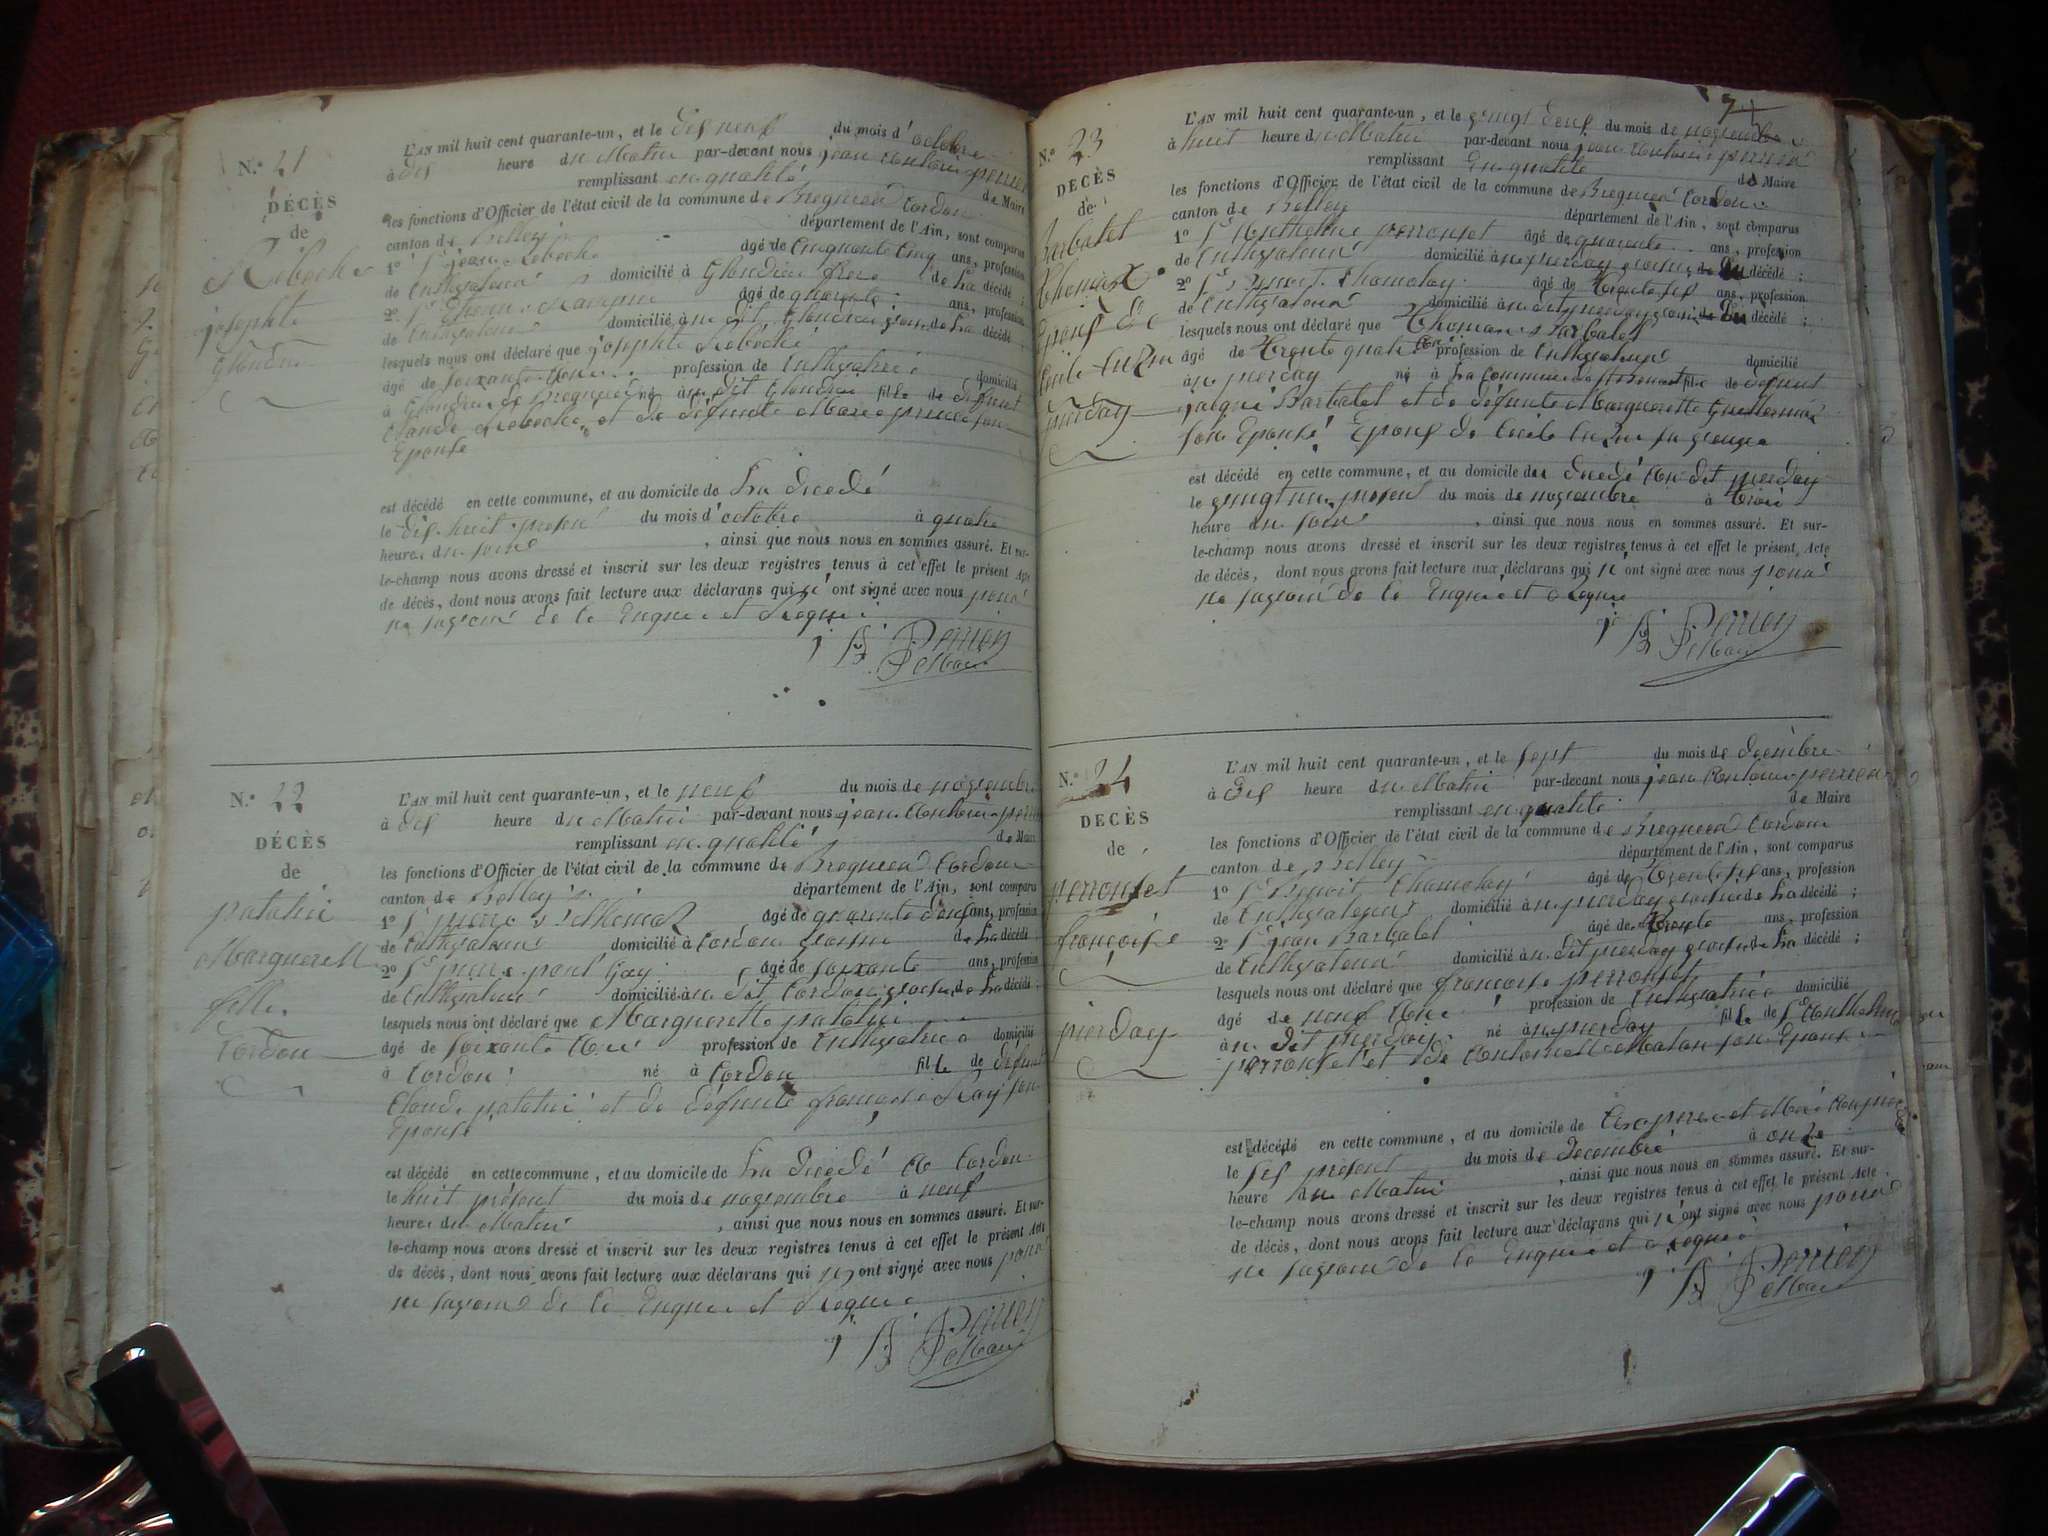 N.° 21
DÉCÈS
de
josephte
L'AN mil huit cent quarante-un, et le dix neuf du mois d'octobre
à dix heure du Matin par-devant nous jean Antoine perrier
remplissant en qualité de Maire
les fonctions d'Officier de l'état civil de la commune de Bregnier Cordon
canton de Belley département de l'Ain, sont comparus
1° Sr jean âgé de Cinquante Cinq ans, profession
de Cultivateur domicilié à Glandieu frere de La décédé ;
2° Sr âgé de quarante ans, profession
de Cultivateur domicilié à dit Glandieu de La décédé ;
lesquels nous ont déclaré que josephte
âgé de soixante profession de domicilié
à Glandieu de né à dit Glandieu fille de défunt
Claude et de défunte Marie son
Epouse
est décédé en cette commune, et au domicile de La décédé
le dix huit présent du mois d'octobre à quatre
heure du soir , ainsi que nous nous en sommes assuré. Et sur-
le-champ nous avons dressé et inscrit sur les deux registres tenus à cet effet le présent Acte
de décès, dont nous avons fait lecture aux déclarans qui n' ont signé avec nous pour
ne savoir de ce Enquis et Requis
Perrier
Maire
N.° 22
DÉCÈS
de
patalin
Marguerett
fille
Cordon
L'AN mil huit cent quarante-un, et le neuf du mois de novembre
à dix heure du Matin par-devant nous jean Antoine perrier
remplissant en qualité de Maire
les fonctions d'Officier de l'état civil de la commune de Bregnier Cordon
canton de Belley département de l'Ain, sont comparu
1° Sr pierre âgé de quarante deux ans, profession
de Cultivateur domicilié à Cordon de La décédé
2° Sr pierre paul Gay âgé de soixante ans, profession
de Cultivateur domicilié à dit Cordon de La décédé ;
lesquels nous ont déclaré que Marguerette patalin
âgé de soixante profession de Cultivatrice domicilié
à Cordon né à Cordon fille de défunt
Claude patalin et de défunte françoise son
Epouse
est décédé en cette commune, et au domicile de La décédé à Cordon
le huit présent du mois de novembre à neuf
heure du Matin , ainsi que nous nous en sommes assuré. Et sur-
le-champ nous avons dressé et inscrit sur les deux registres tenus à cet effet le présent Acte
de décès, dont nous avons fait lecture aux déclarans qui n' ont signé avec nous pour
ne savoir de ce Enquis et Requis
Perrier
Maire
N.° 23
DÉCÈS
de
Barbatet
Thomas
Epoux de
Cecile
pierday
L'AN mil huit cent quarante-un, et le vingt deux du mois de novembre
à huit heure du Matin par-devant nous jean Antoine perrier
remplissant En qualité de Maire
les fonctions d'Officier de l'état civil de la commune de Bregnier Cordon
canton de Belley département de l'Ain, sont comparus
1° Sr Anthelme perrouset âgé de quarante ans, profession
de Cultivateur domicilié à pierday de décédé ;
2° Sr Benoit Chamelay âgé de Trente six ans, profession
de Cultivateur domicilié à dit pierday de décédé ;
lesquels nous ont déclaré que Thomas Barbatet
âgé de Trente quatre ans profession de Cultivateur domicilié
à pierday né à La Commune de fils de défunt
jacque Barbatet et de défunte Marguerette
son Epouse Epoux de Cecile
est décédé en cette commune, et au domicile du décédé dit pierday
le vingt un présent du mois de novembre à trois
heure du soir , ainsi que nous nous en sommes assuré. Et sur-
le-champ nous avons dressé et inscrit sur les deux registres tenus à cet effet le présent Acte
de décès, dont nous avons fait lecture aux déclarans qui n' ont signé avec nous pour
ne savoir de ce Enquis et Requis
Perrier
Maire
N.° 24
DÉCÈS
de
perrouset
françoise
pierday
L'AN mil huit cent quarante-un, et le sept du mois de décembre
à dix heure du Matin par-devant nous jean Antoine perrier
remplissant en qualité de Maire
les fonctions d'Officier de l'état civil de la commune de Bregnier Cordon
canton de Belley département de l'Ain, sont comparus
1° Sr Benoit Chamelay âgé de Trente six ans, profession
de Cultivateur domicilié à pierday de La décédé ;
2° Sr jean Barbatet âgé de Trente ans, profession
de Cultivateur domicilié à dit pierday de La décédé ;
lesquels nous ont déclaré que françoise perrouset
âgé de neuf ans profession de Cultivatrice domicilié
à dit pierday né à pierday fille de Sr Anthelme
perrouset et de son Epouse
est décédé en cette commune, et au domicile de
le six présent du mois de Decembre à onze
heure du Matin , ainsi que nous nous en sommes assuré. Et sur-
le-champ nous avons dressé et inscrit sur les deux registres tenus à cet effet le présent Acte
de décès, dont nous avons fait lecture aux déclarans qui n' ont signé avec nous pour
ne savoir de ce Enquis et Requis
Perrier
Maire